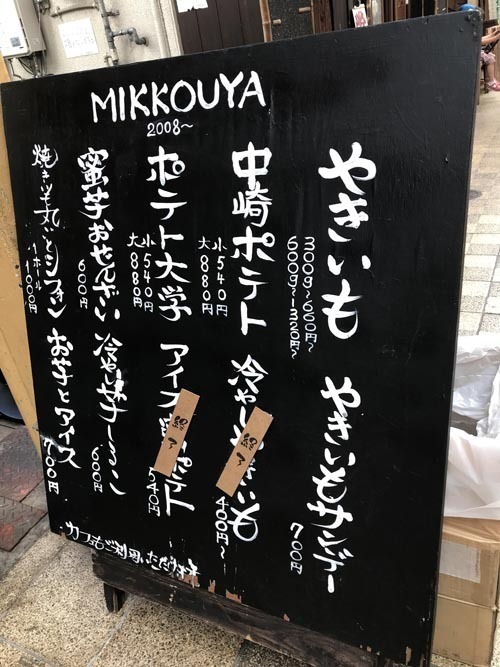 MIKKOUYA
2008〜
やきいも
300g〜600円〜
600g〜1320円〜
やきいもサンデー
700円
中崎ポテト
小540円
大880円
冷やしやきいも
400円〜
終了
ポテト大学
小540円
大880円
アイス
ポテト
540円
終了
蜜芋おぜんざい
600円
冷やし
600円
焼きいも丸ごとシフォン
1ホール
お芋とアイス
700円
カフェもご利用いただけます